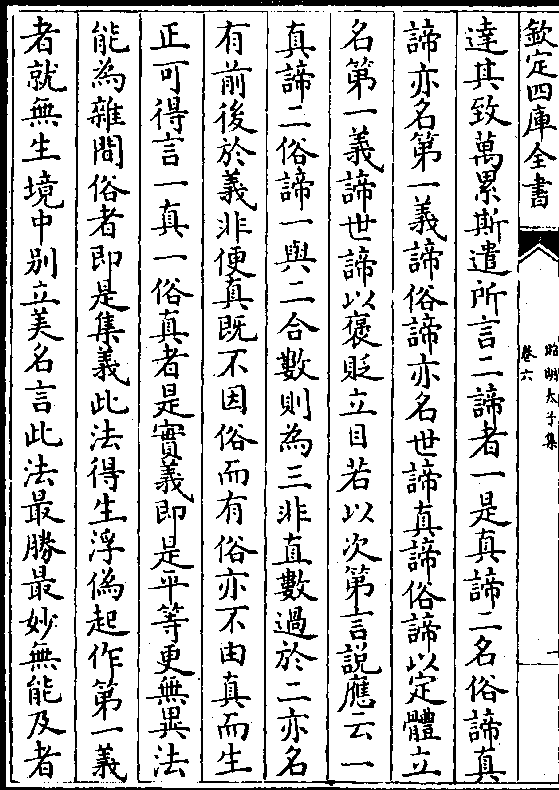 欽定四庫全書
昭明太子集
卷六
達其致萬累斯遣所言二諦者一是真諦二名俗諦真
諦亦名第一義諦俗諦亦名世諦真諦俗諦以定體立
名第一義諦世諦以褒貶立目若以次第言說應云一
真諦二俗諦一與二合數則為三非直數過於二亦名
有前後於義非便真既不因俗而有俗亦不由真而生
正可得言一真一俗真者是實義即是平等更無異法
能為雜間俗者即是集義此法得生浮偽起作第一義
者就無生境中别立美名言此法最勝最妙無能及者